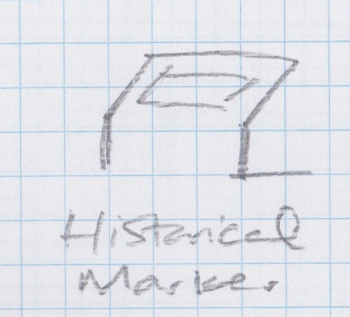 Historical
Marker